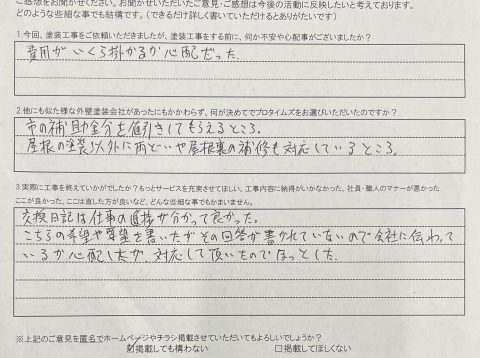 ご感想をお聞かせください。お聞かせいただいたご意見・ご感想は今後の活動に反映したいと考えております。
どのような些細な事でも結構です。(できるだけ詳しく書いていただけるとありがたいです)
1.今回、塗装工事をご依頼いただきましたが、塗装工事をする前に、何か不安や心配事がございましたか?
費用がいくら掛かるか心配だった.
2.他にも似た様な外壁塗装会社があったにもかかわらず、何が決めてでプロタイムズをお選びいただいたのですか?
市の補助金分を値引きしてもらえるところ.
屋根の塗装以外に雨どいや屋根裏の補修も対応しているところ.
3.実際に工事を終えていかがでしたか?もっとサービスを充実させてほしい、工事内容に納得がいかなかった、社員・職人のマナーが悪かった
ここが良かった、ここは直した方が良いなど、どんな些細な事でもかまいません。
交換日記は仕事の進捗が分かって良かった.
こちらの希望や要望を書いたがその回答が書かれていないので会社に伝わって
いるか心配したが、対応して頂いたのでほっとした.
※上記のご意見を匿名でホームページやチラシ掲載させていただいてもよろしいでしょうか?
☑掲載しても構わない □掲載してほしくない